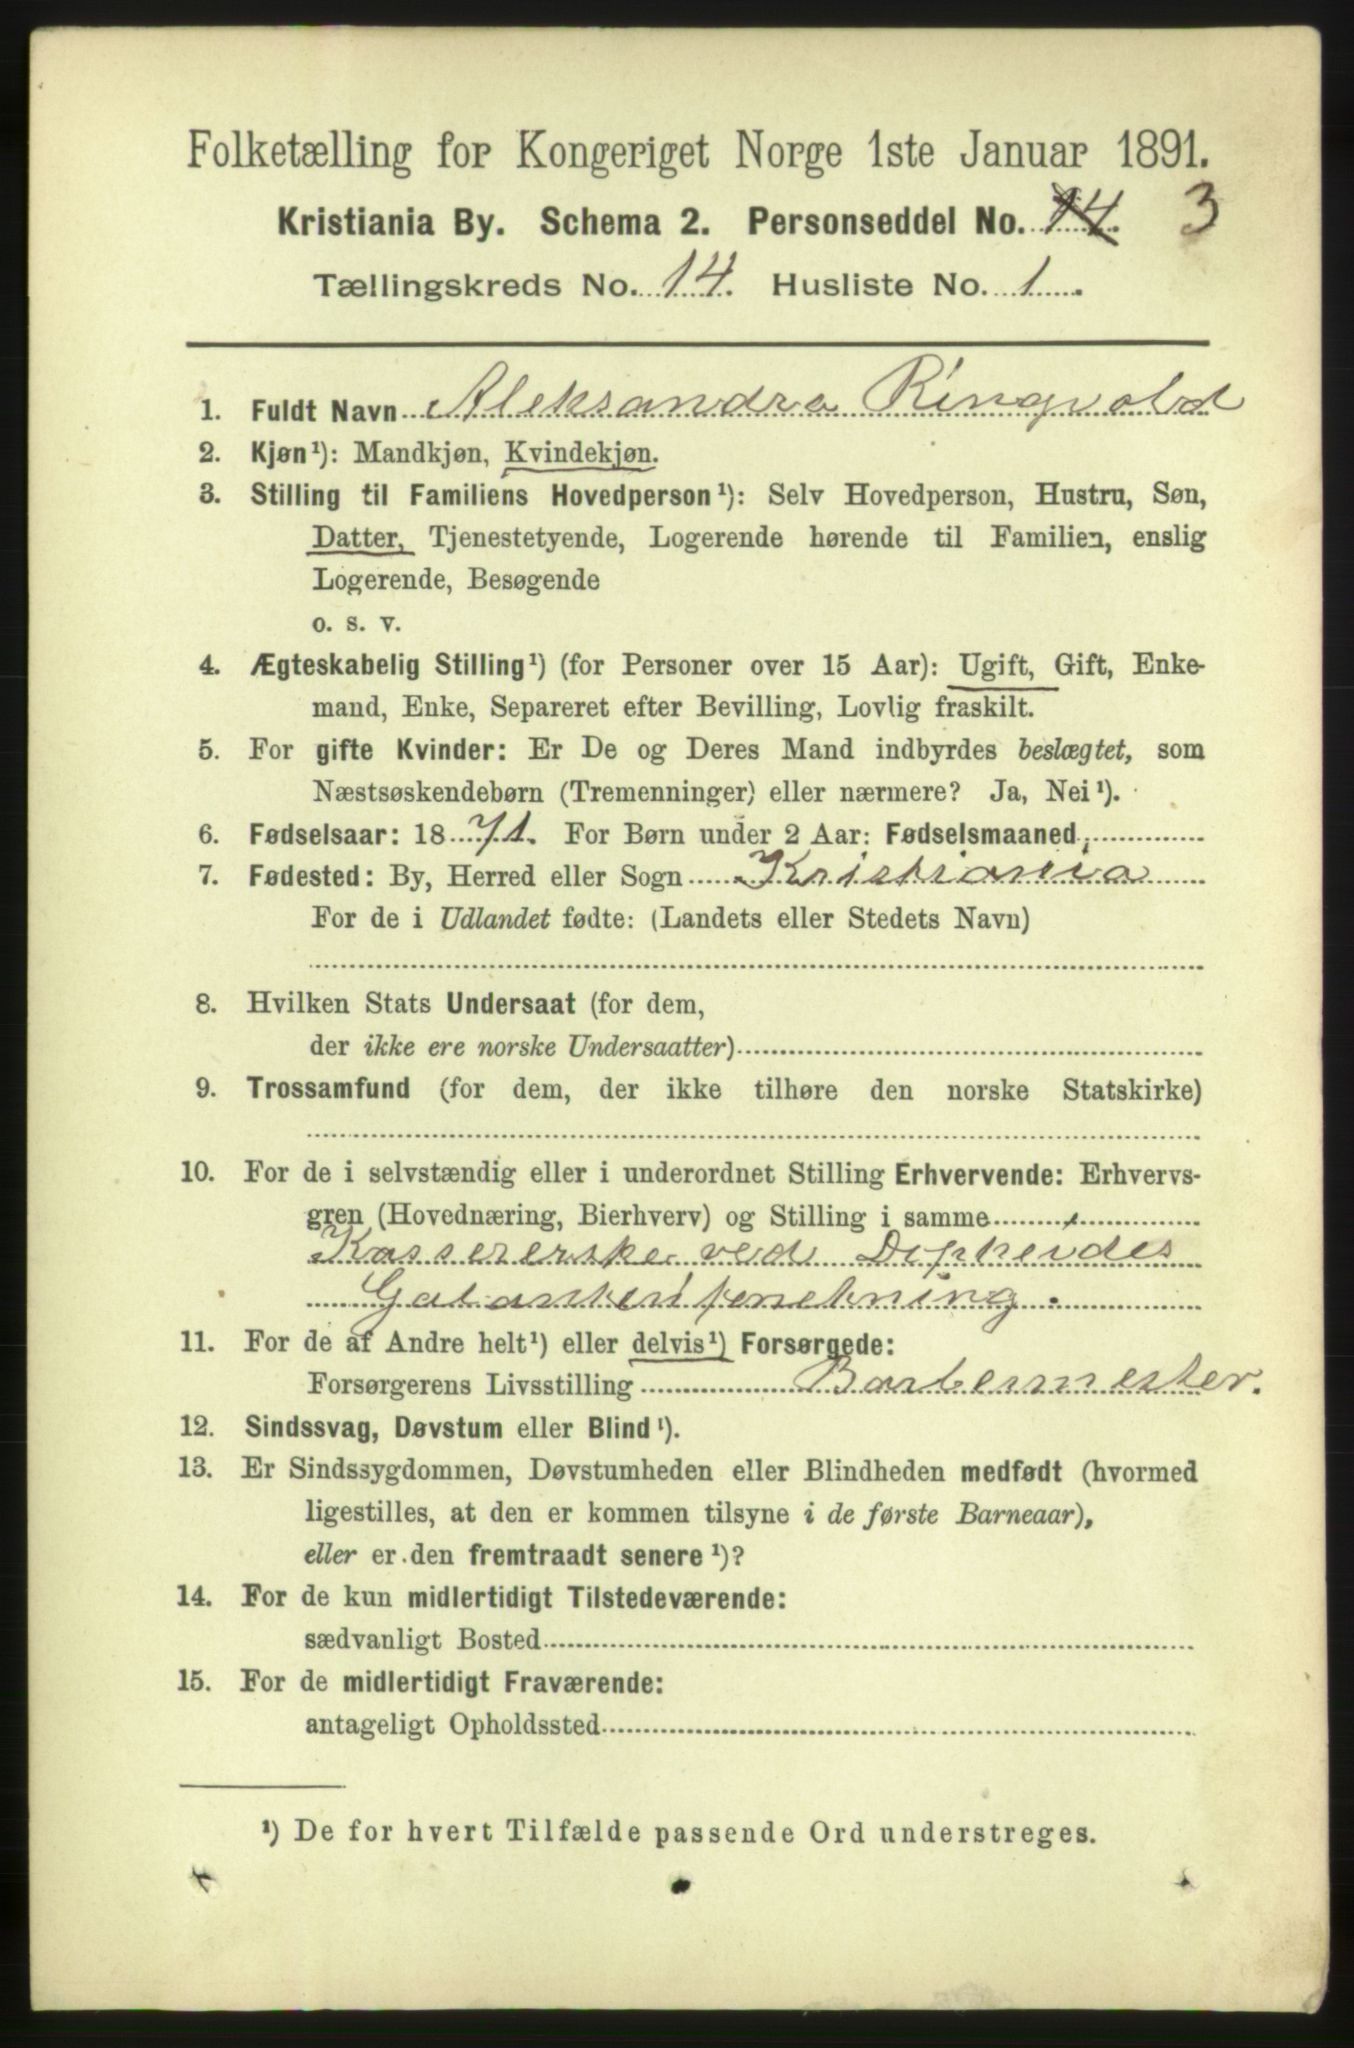 Folketælling for Kongeriget Norge 1ste Januar 1891.
Kristiania By. Schema 2. Personseddel No. 14. 3
Tællingskreds No. 14. Husliste No. 1.
1. Fuldt Navn Aleksandra Ringvold
2. Kjøn¹): Mandkjøn, Kvindekjøn.
3. Stilling til Familiens Hovedperson¹): Selv Hovedperson, Hustru, Søn,
Datter, Tjenestetyende, Logerende hørende til Familien, enslig
Logerende, Besøgende
o. s. v.
4. Ægteskabelig Stilling¹) (for Personer over 15 Aar): Ugift, Gift, Enke-
mand, Enke, Separeret efter Bevilling, Lovlig fraskilt.
5. For gifte Kvinder: Er De og Deres Mand indbyrdes beslægtet, som
Næstsøskendebørn (Tremenninger) eller nærmere? Ja, Nei¹).
6. Fødselsaar: 1871. For Børn under 2 Aar: Fødselsmaaned
7. Fødested: By, Herred eller Sogn Kristiania
For de i Udlandet fødte: (Landets eller Stedets Navn)
8. Hvilken Stats Undersaat (for dem,
der ikke ere norske Undersaatter)
9. Trossamfund (for dem, der ikke tilhøre den norske Statskirke)
10. For de i selvstændig eller i underordnet Stilling Erhvervende: Erhvervs-
gren (Hovednæring, Bierhverv) og Stilling i samme
Kassererske ved
11. For de af Andre helt¹) eller delvis¹) Forsørgede:
Forsørgerens Livsstilling Barbermester.
12. Sindssvag, Døvstum eller Blind¹).
13. Er Sindssygdommen, Døvstumheden eller Blindheden medfødt (hvormed
ligestilles, at den er kommen tilsyne i de første Barneaar),
eller er den fremtraadt senere¹)?
14. For de kun midlertidigt Tilstedeværende:
sædvanligt Bosted
15. For de midlertidigt Fraværende:
antageligt Opholdssted
¹) De for hvert Tilfælde passende Ord understreges.